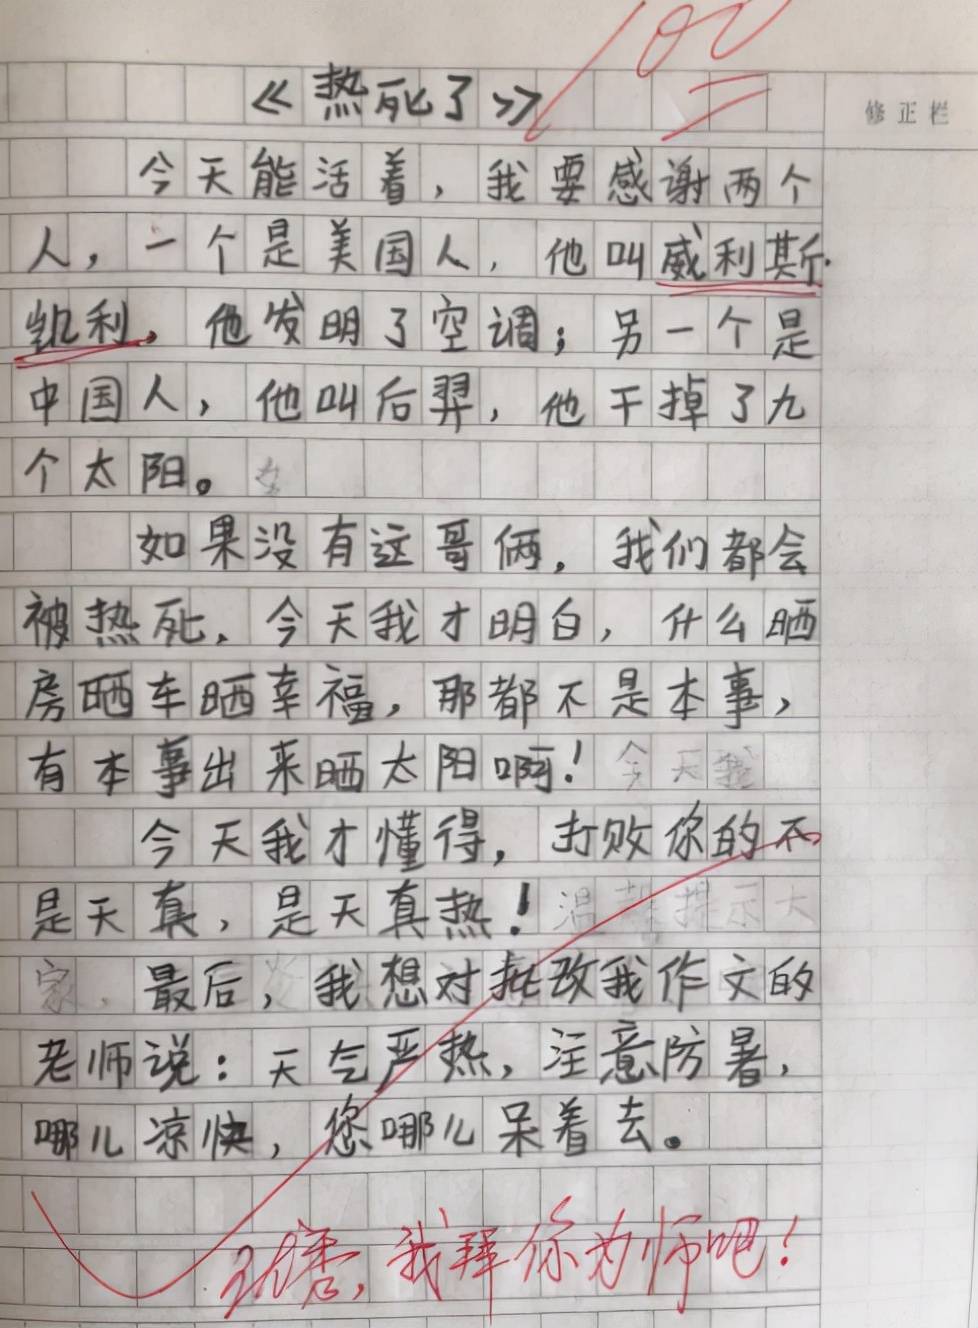 100
《热死了》
修正栏
今天能活着，我要感谢两个
人，一个是美国人，他叫威利斯·
凯利，他发明了空调；另一个是
中国人，他叫后羿，他干掉了九
个太阳。
如果没有这哥俩，我们都会
被热死，今天我才明白，什么晒
房晒车晒幸福，那都不是本事，
有本事出来晒太阳啊！今天我
今天我才懂得，打败你的不
是天真，是天真热！温馨提示大
家，最后，我想对批改我作文的
老师说：天气严热，注意防暑，
哪儿凉快，您哪儿呆着去。
我拜你为师吧！